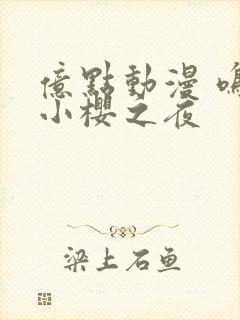 億點動漫 鳴
小櫻之夜
梁上石鱼